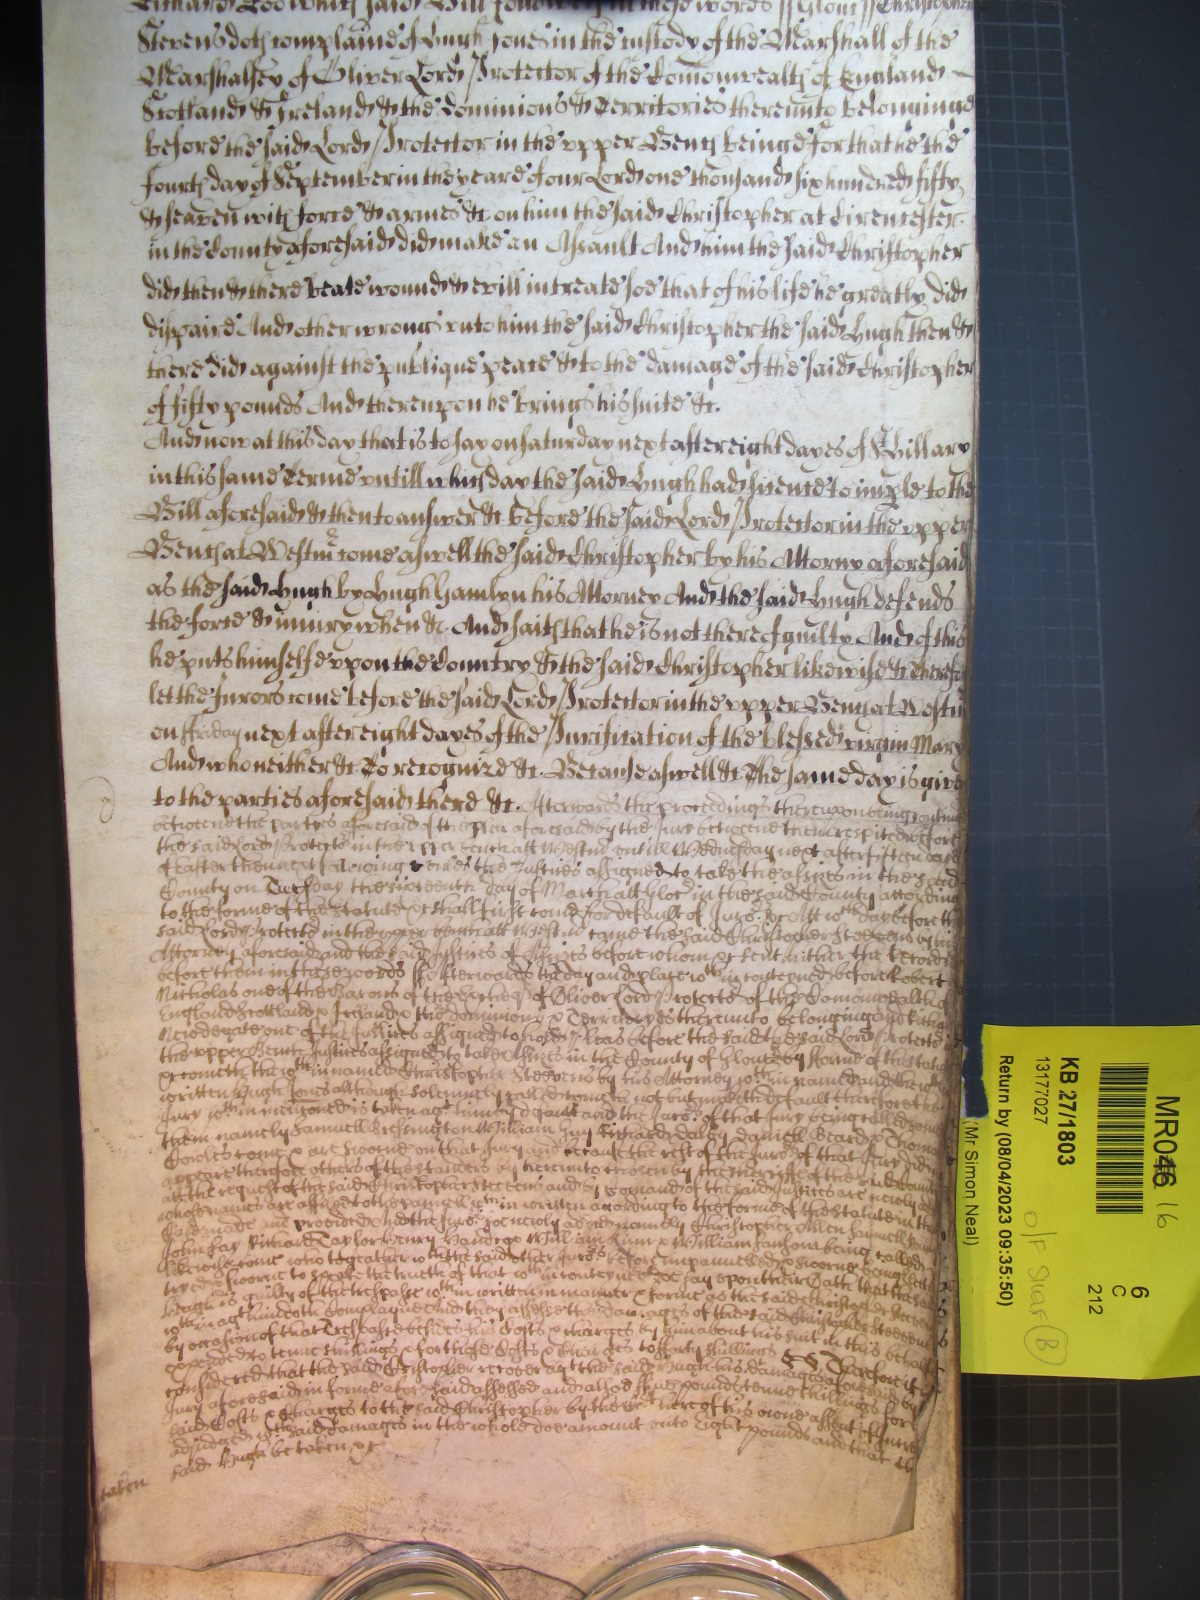 said Bill followeth in these words ss Glouc ss Christopher
Stevens doth complaine of Hugh Jones in the custody of the Marshall of the
Marshalsey of Oliver Lord Protector of the Comonwealth of England
Scotland & Ireland & the dominions & Territories thereunto belonginge
before the said Lord Protector in the upper Bench being for that he the
fourth day of September in the yeare of our Lord one thousand six hundred fifty
& seaven with force & armes &c on him the said Christopher at Cirencester
in the County aforesaid did make an Assault And him the said Christopher
did then & there beate wound & evill intreate soe that of his life he greatly did
dispaire And other wrongs unto him the said Christopher the said Hugh then &
there did against the publique peace & to the damage of the said Christopher
of fifty pounds And thereupon he brings his suite &c.
And now at this day that is to say on Saturday next after eight dayes of St Hillary
in this same Terme untill which day the said Hugh had licence to imple to the
Bill aforesaid & then to answer &c before the said Lord Protector in the upper
Bench at Westmr come aswell the said Christopher by his Attorny aforesaid
as the said Hugh by Hugh Hamlyn his Attorney And the said Hugh defends
the force & iniury when &c And saith that he is not thereof guilty And of this
he puts himselfe upon the Country & the said Christopher likewise &c Therefore
let the Jurors come before the said Lord Protector in the upper Bench at Westmr
on ffriday next after eight dayes of the Purification of the blessed virgin Mary
And who neither &c To recognize &c. Because aswell &c The same day is given
to the parties aforesaid there &c. Afterwards the proceedings thereupon being continued
betweene the partyes aforesaid of the plea aforesaid by the Jury betweene them respited before
the said Lord Protector in the upper Bench att Westmr untill Wednesday next after fifteen dayes
of Easter then next following unles the Justices assigned to take the assizes in the said
County on Tuesday the sixteenth day of March att Glouc in the said County according
to the forme of the statute &c shall first come for default of Jurors &c Att wch day before the
said Lord Protector in the upper Bench att Westmr came the said Christopher Steevens by his
Attorney aforesaid and the said Justices of Assizes before whom &c sent hither the Record
before them in these words ss Afterwards the day and place wthin conteyned before Robert
Nicholas one of the Barons of the Excheqr of Oliver Lord Protector of the Comonwealth of
England Scotland & Ireland & the dominions & Territoryes thereunto belonging and
Newdegate one of the Justices assigned to hold Pleas before the said Lord Protector
the upper Bench Justices assigned to take Assizes in the County of Glouc by forme of the statute
&c cometh the wthin named Christopher Steevens by his Attorney wthin named and the wthin
written Hugh Jones although solemnely called cometh not but maketh default therefore the
Jury wthin mencioned is taken agt him by default and the Jurors of that Jury being called some
them namely Samuell William Guy Richard Daniell Beard & Thomas
come & are sworne on that Jury and because the rest of the Jurors of that Jury did not
appeare therefore others of the standers by hereunto chosen by the Sherriffe of the
att the request of the said Christopher Steevens and by Comand of the said Justices are newly
whose names are affiled to the pannell wthin written according to the forme of the Statute in that
Case made and provided And the Jurors soe newly added namely Christopher Allen Samuell
John Kay Richard Taylor Henry & William & William being called
likewise come who together wth the said other Jurors before impannelled & sworne
tryed & sworne to speake the truth of that wthin conteyned doe say upon their Oath that the said
Hugh is guilty of the trespasse wthin written in manner & forme as the said Christopher Steevens
wthin agt him doth Complayne And they assesse the damages of the said Christopher Steevens
by occasion of that Trespasse besides his Costs & charges by him about his suit in this behalf
expended to tenne shillings & for those Costs & charges to forty shillings §§ Therefore it is
considered that the said Christopher recover agt the said Hugh his damages aforesaid by
Jury aforesaid in forme aforesaid assessed and alsoe five pounds tenne shillings for
said Costs & charges to the said Christopher by the Court here of his owne assent
adjudged wch said damages in the whole doe amount unto Eight pounds and that the
said Hugh be taken &c
taken
MR046 16
6
C
212
KB 27/1803
13177027
Return by (08/04/2023 09:35:50)
(Mr Simon Neal)
B